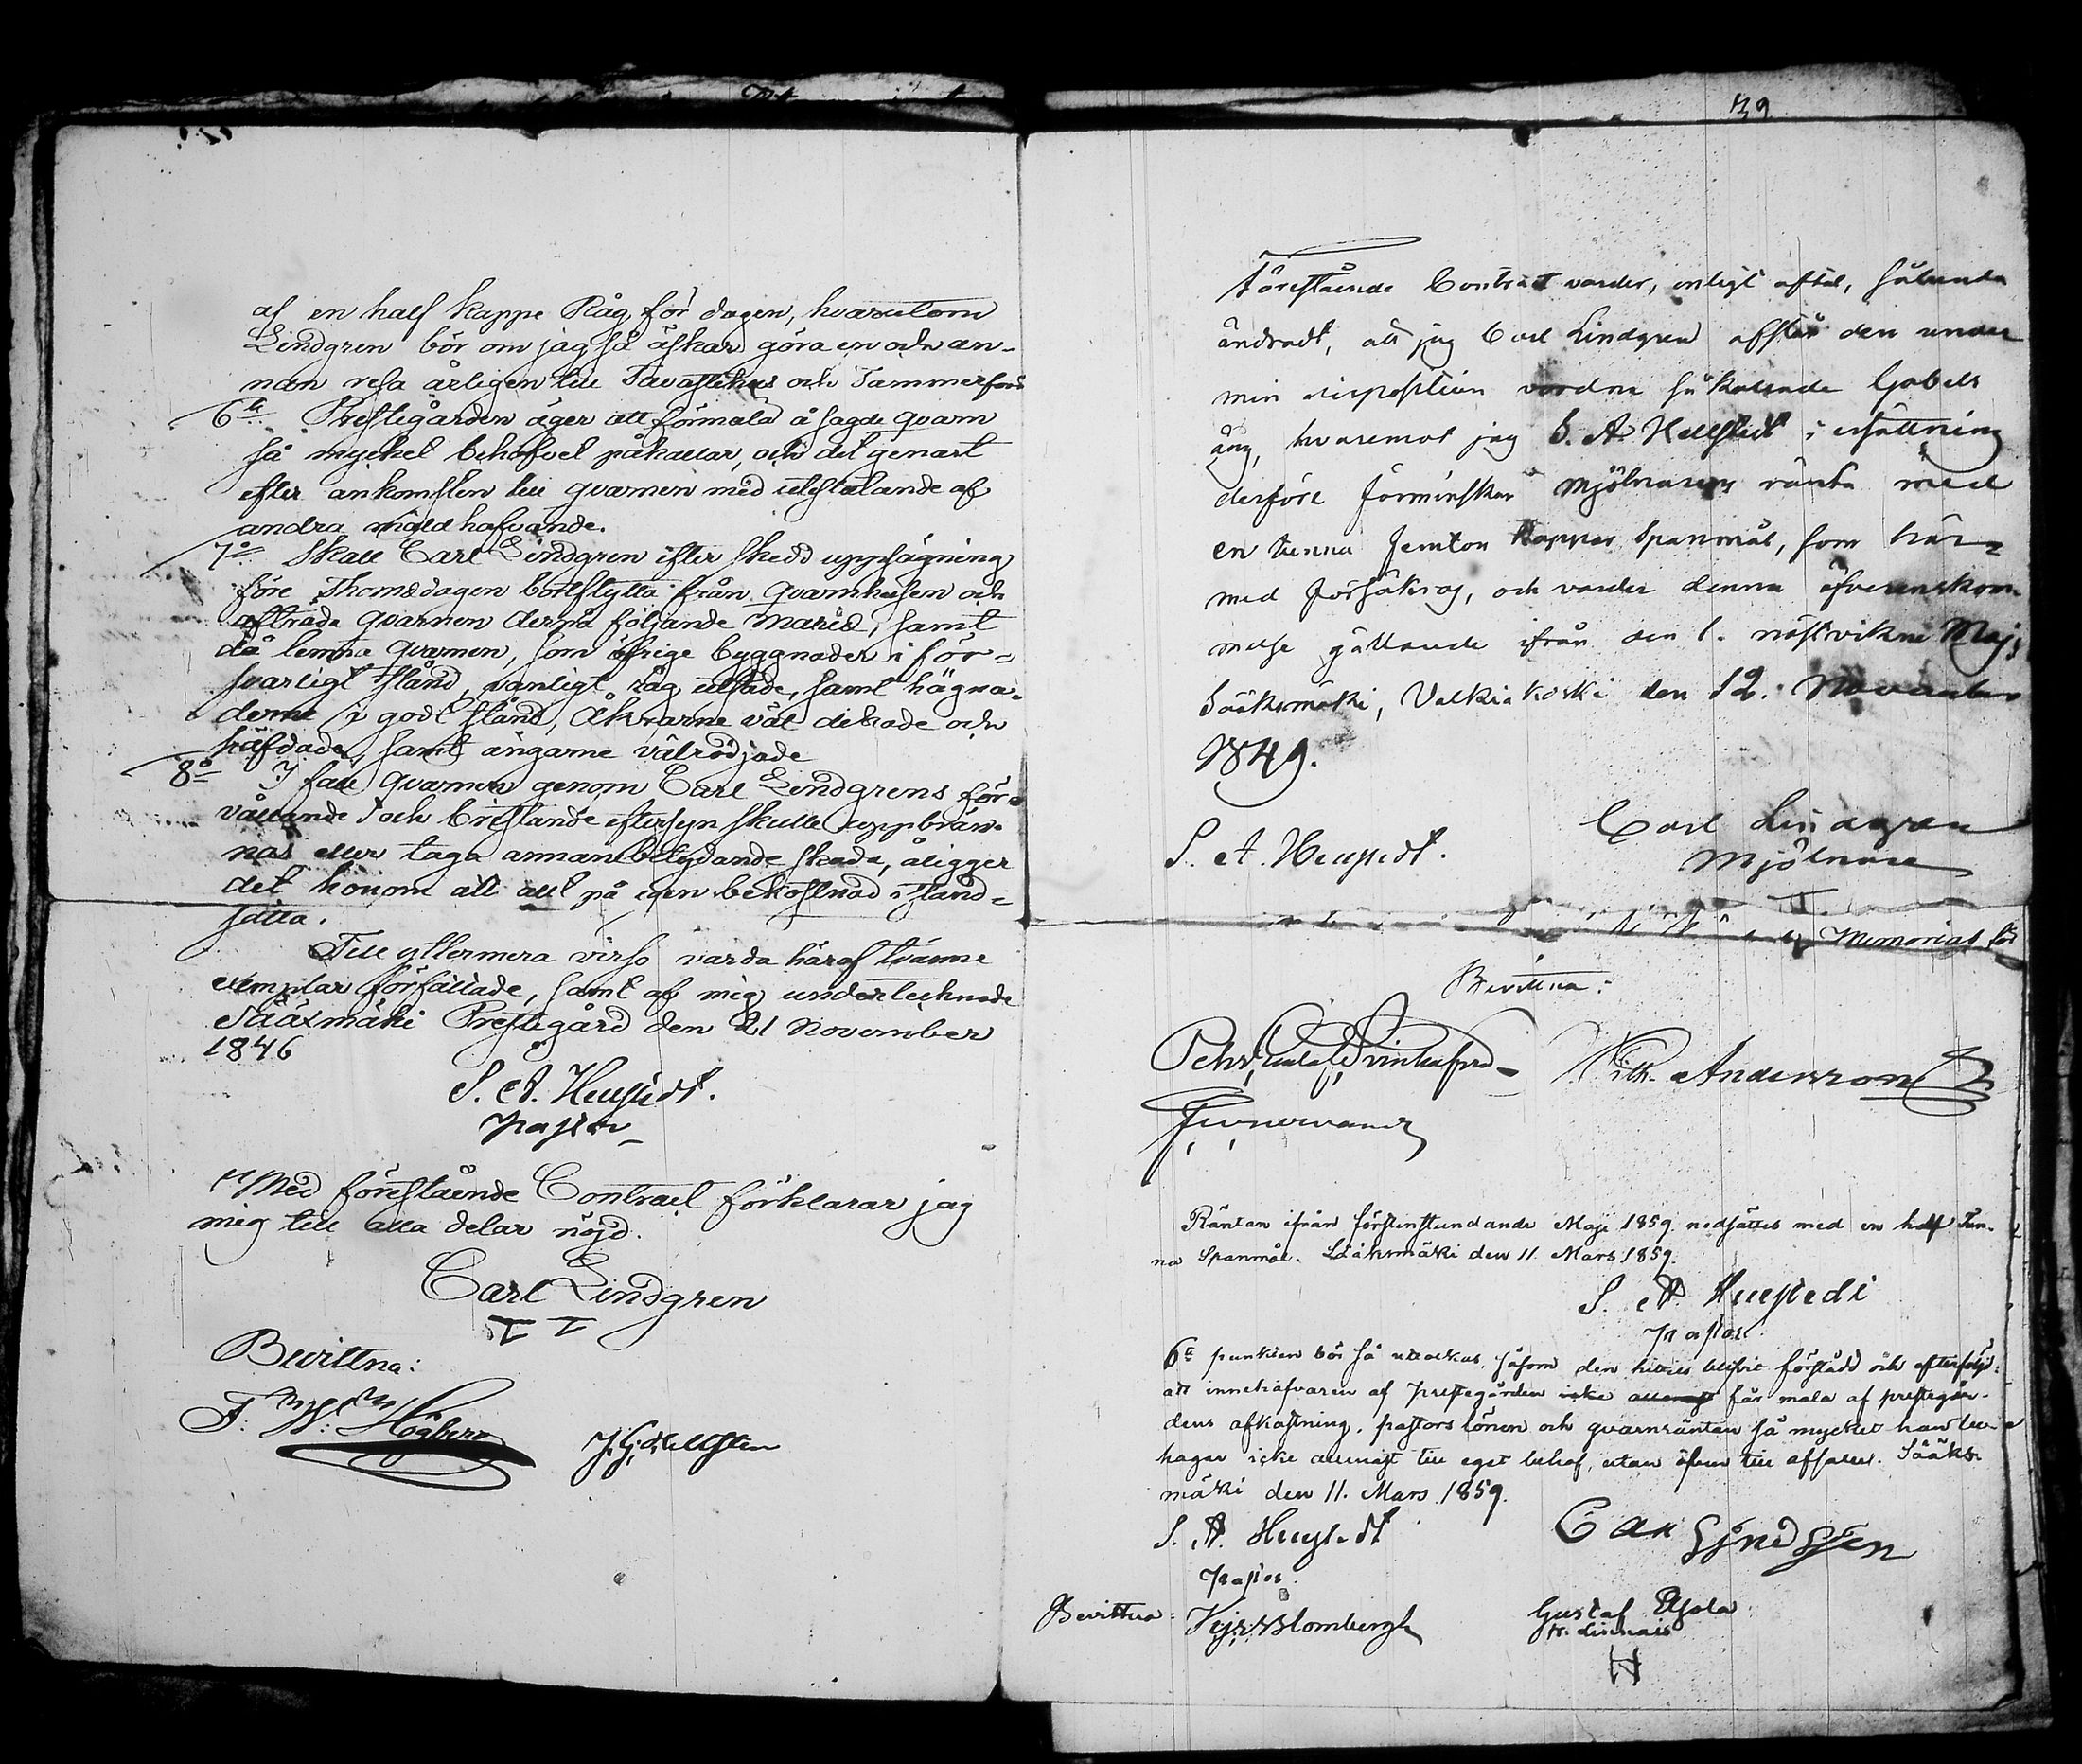 af en half kappe Råg för dagen, hvarutom
Lindgren bör om jag så äskar göra en och an-
nan resa årligen till Tavastehus och Tammerfors
6te Prestegården äger att förmala å sagde qvarn
så mycket behofvet påkallar, och det genast
efter ankomsten till qvarnen med uteslutande af
andra mäld hafvande.
7o Skall Carl Lindgren efter skedd uppsägning
före Thomædagen bortflytta från qvarnhusen och
afträda qvarnen derpå följande Martii, samt
då lemna qvarnen, som öfrige byggnader i för-
svarligt stånd, vanligt råg utsäde, samt hägna-
derne i godt stånd, åkrarne väl dikade och
häfdade, samt ängarne välrödjade
8o I fall qvarnen genom Carl Lindgrens för-
vållande och bristande eftersyn skulle uppbrän-
nas eller taga annan betydande skada, åligger
det honom att allt på egen bekostnad istånd-
sätta.
Till yttermera visso varda häraf tvänne
exemplar författade, samt af mig undertecknade
Sääxmäki Prestegård den 21 November
1846
S. A. Hellstedt.
Pastor
Med förestående Contract förklarar jag
mig till alla delar nöjd.
Carl Lindgren
Bevittna:
F. W. Högberg J. G. Hellsten
39
Förestående Contract varder, enligt aftal, sålunda
ändradt, att jag Carl Lindgren afstår den under
min disposition vordne så kallade Gabels
äng, hvaremot jag S. A. Hellstedt i ersättning
derföre förminskar Mjölnarens ränta med
en tunna femton Kappar Spanmål, som här-
med försäkras, och varder denna öfverenskom-
melse gällande ifrån den 1. nästvikne Maj;
Sääksmäki, Valkiakoski den 12. November
1849.
S. A. Hellstedt. Carl Lindgren
Mjölnare
Memorial för
Bevittna:
Pehr Svinhufvud Wilh. Andersson
Räntan ifrån förstinstundande Maji 1859 nedsättes med en half Tun-
na Spanmål. Sääksmäki den 11. Mars 1859.
S. A. Hellstedt
Pastor
6te punkten bör så utdeckas, såsom den hittils blifvit förstådd och efterföljd:
att innehafvaren af prestegården icke allenast får mala af prestegår-
dens afkastning, pastorslönen och qvarnräntan så mycket han be-
hagar icke allenast till eget behof, utan äfven till afsalu. Sääks-
mäki den 11. Mars 1859.
S. A. Hellstedt Carl Lindgren
Pastor
Bevittna: Blombergh Gustaf